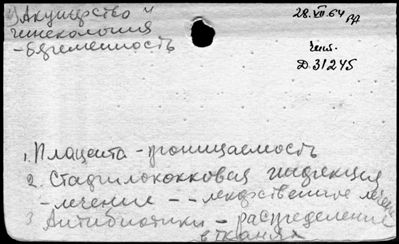 Акушерство и
гинекология
- беременность
28.VII.64
Д.31245
1. Плацента - проницаемость
2. Стафилококковая инфекция
- лечение - - лекарственное лечение
3 Антибиотики - распределение
в тканях